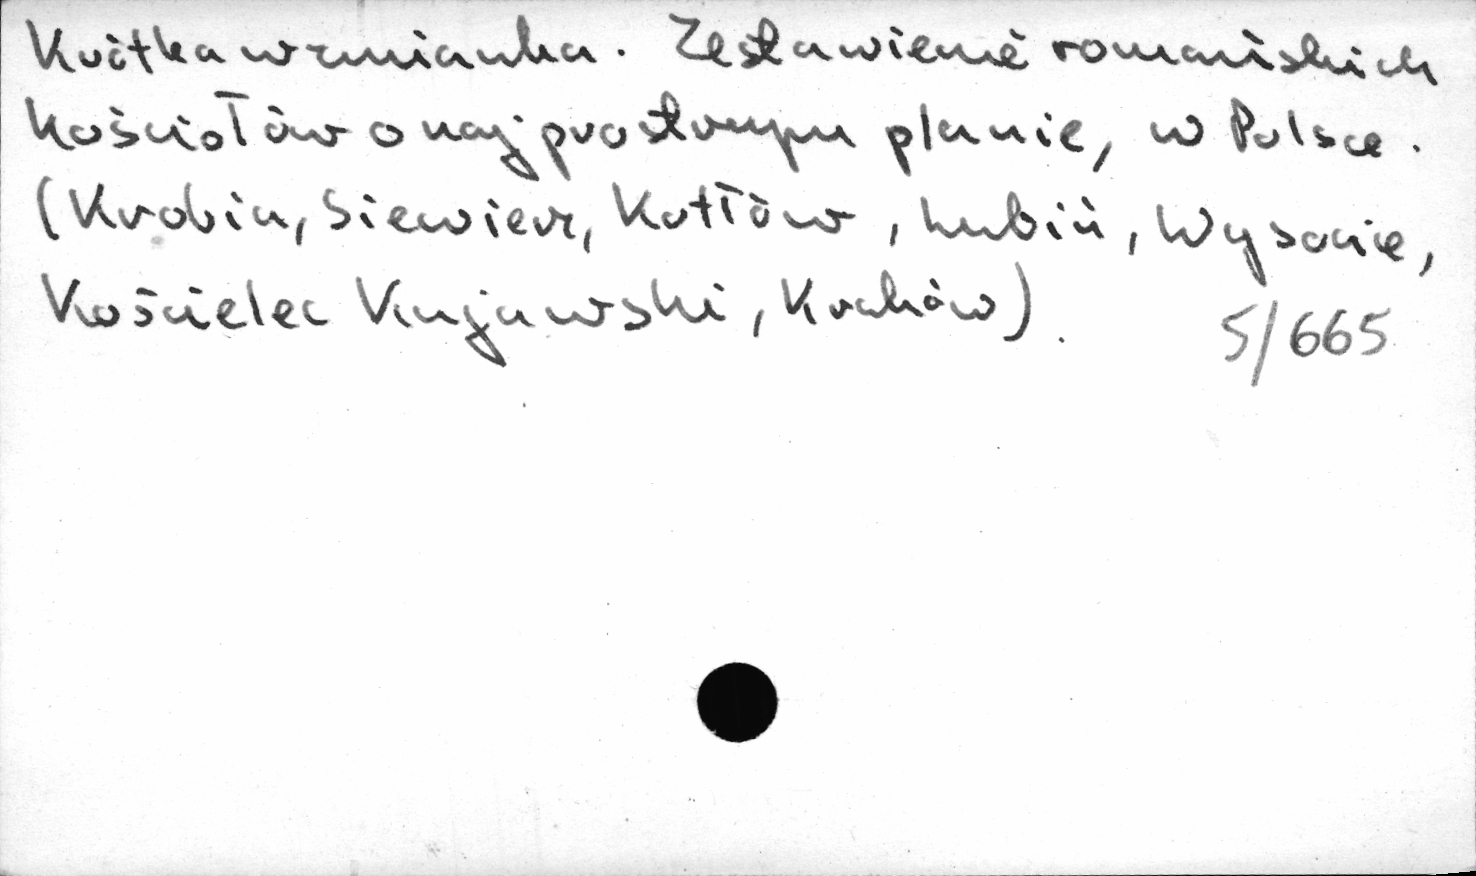 Krótka wzmianka. Zestawienie romańskich
kościołów o najprostszym planie, w Polsce.
(Krobia, Siewierz, Kotłów, Lubiń, Wysocice,
Kościelec Kujawski, Kraków).
5/665